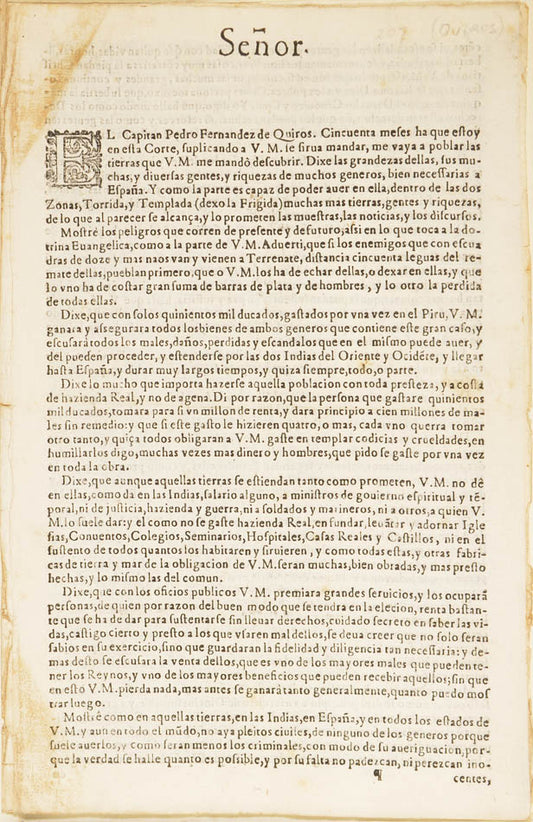 207 (Quiros)
Señor.
EL Capitan Pedro Fernandez de Quiros. Cincuenta meses ha que estoy
en esta Corte, suplicando a V. M. se sirua mandar, me vaya a poblar las
tierras que V. M. me mandò descubrir. Dixe las grandezas dellas, sus mu-
chas, y diuersas gentes, y riquezas de muchos generos, bien necessarias a
España. Y como la parte es capaz de poder auer en ella, dentro de las dos
Zonas, Torrida, y Templada (dexo la Frigida) muchas mas tierras, gentes y riquezas,
de lo que al parecer se alcança, y lo prometen las muestras, las noticias, y los discursos.
Mostré los peligros que corren de presente y de futuro, assi en lo que toca a la do-
trina Euangelica, como a la parte de V. M. Aduerti, que si los enemigos que con escua
dras de doze y mas naos van y vienen a Terrenate, distancia cincuenta leguas del re-
mate dellas, pueblan primero, que o V. M. los ha de echar dellas, o dexar en ellas, y que
lo vno ha de costar gran suma de barras de plata y de hombres, y lo otro la perdida
de todas ellas.
Dixe, que con solos quinientos mil ducados, gastados por vna vez en el Piru, V. M.
ganara y assegurara todos los bienes de ambos generos que contiene este gran caso, y
escusarà todos los males, daños, perdidas y escandalos que en el mismo puede auer, y
del pueden proceder, y estenderse por las dos Indias del Oriente y Ocidẽte, y llegar
hasta España, y durar muy largos tiempos, y quiza siempre, todo, o parte.
Dixe lo mucho que importa hazerse aquella poblacion con toda presteza, y a costa
de hazienda Real, y no de agena. Di por razon, que la persona que gastare quinientos
mil ducados, tomara para si vn millon de renta, y dara principio a cien millones de ma-
les sin remedio: y que si este gasto le hizieren quatro, o mas, cada vno querra tomar
otro tanto, y quiça todos obligaran a V. M. gaste en templar codicias y crueldades, en
humillarlos digo, muchas vezes mas dinero y hombres, que pido se gaste por vna vez
en toda la obra.
Dixe, que aunque aquellas tierras se estiendan tanto como prometen, V. M. no dé
en ellas, como da en las Indias, salario alguno, a ministros de gouierno espiritual y tẽ-
poral, ni de justicia, hazienda y guerra, ni a soldados y marineros, ni a otros, a quien V.
M. lo suele dar: y el como no se gaste hazienda Real, en fundar, leuãtar y adornar Igle
sias, Conuentos, Colegios, Seminarios, Hospitales, Casas Reales y Castillos, ni en el
sustento de todos quantos los habitaren y siruieren, y como todas estas, y otras fabri-
cas de tierra y mar de la obligacion de V. M. seran muchas, bien obradas, y mas presto
hechas, y lo mismo las del comun.
Dixe, que con los oficios publicos V. M. premiara grandes seruicios, y los ocuparà
personas, de quien por razon del buen modo que se tendra en la elecion, renta bastan-
te que se ha de dar para sustentarse sin lleuar derechos, cuidado secreto en saber las vi-
das, castigo cierto y presto a los que vsaren mal dellos, se deua creer que no solo seran
sabios en su exercicio, sino que guardaran la fidelidad y diligencia tan necessaria: y de-
mas desto se escusara la venta dellos, que es vno de los mayores males que pueden te-
ner los Reynos, y vno de los mayores beneficios que pueden recebir aquellos; sin que
en esto V. M. pierda nada, mas antes se ganarà tanto generalmente, quanto puedo mos
trar luego.
Mostré como en aquellas tierras, en las Indias, en España, y en todos los estados de
V. M. y aun en todo el mũdo, no aya pleitos ciuiles, de ninguno de los generos porque
suele auerlos, y como seran menos los criminales, con modo de su aueriguacion, por-
que la verdad se halle quanto es possible, y por su falta no padezcan, ni perezcan ino-
¶ centes,